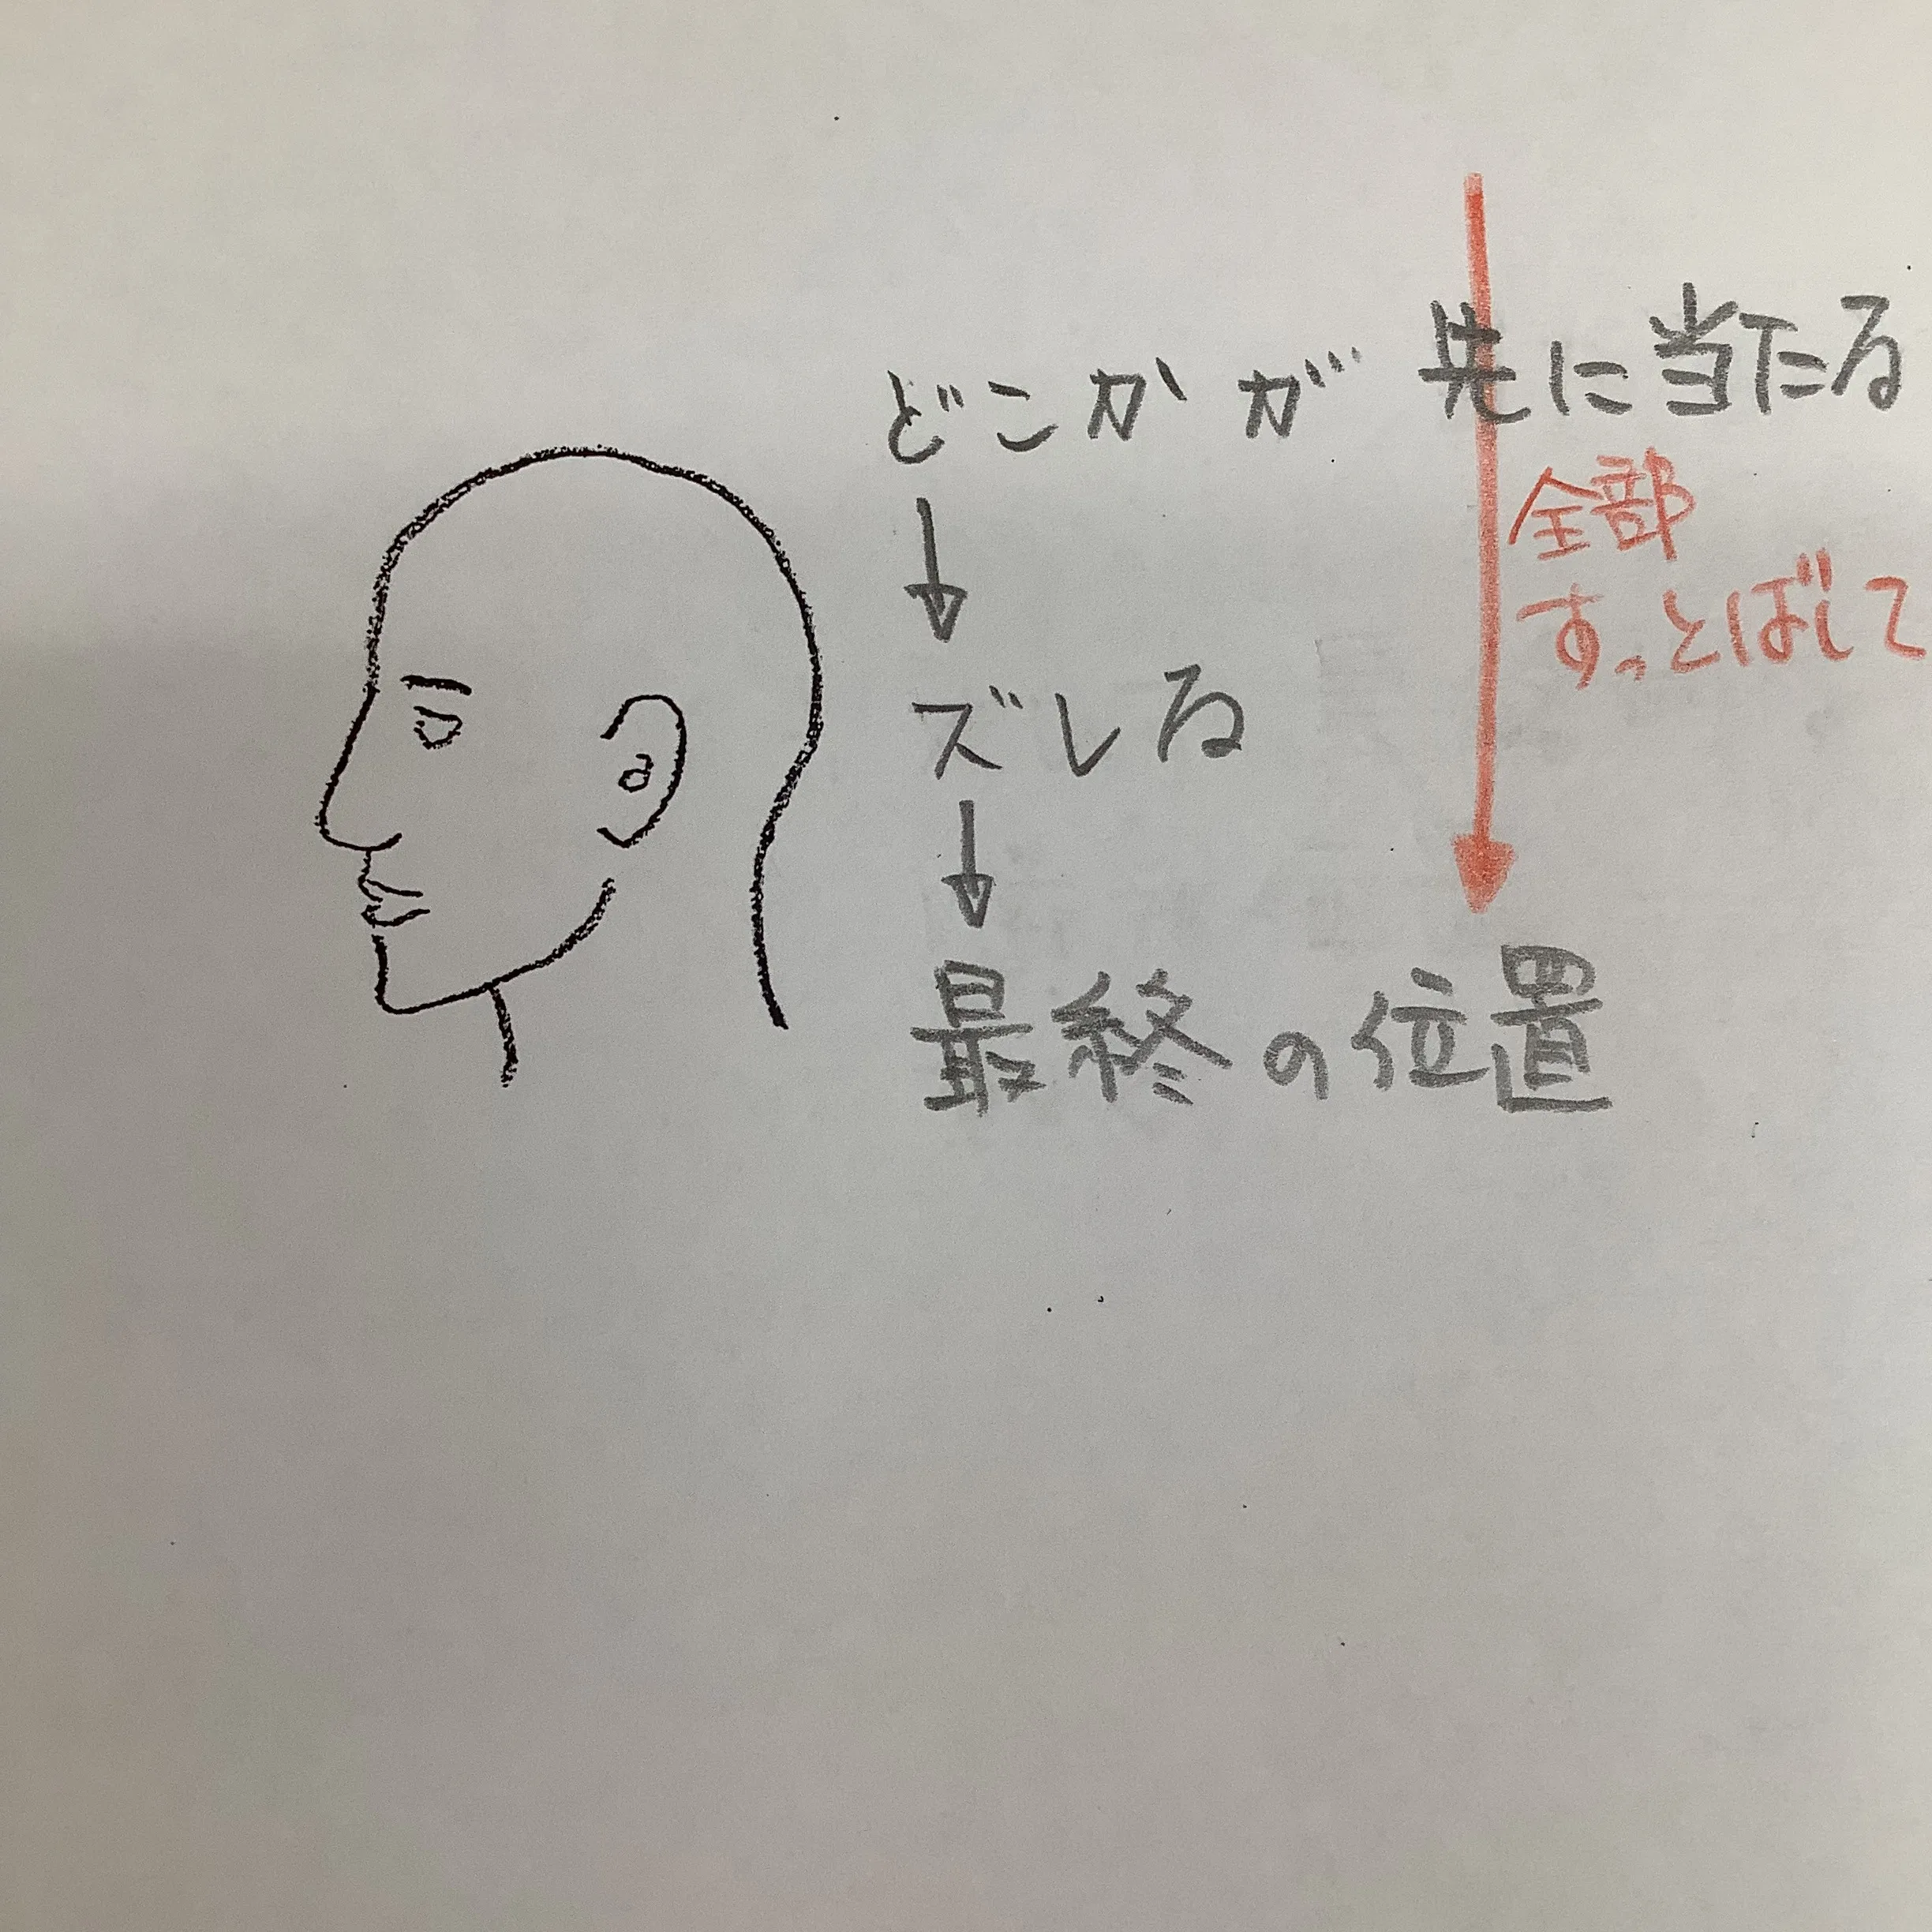 どこかが先に当たる
↓
全部
すっとばして
ズレる
↓
最終の位置